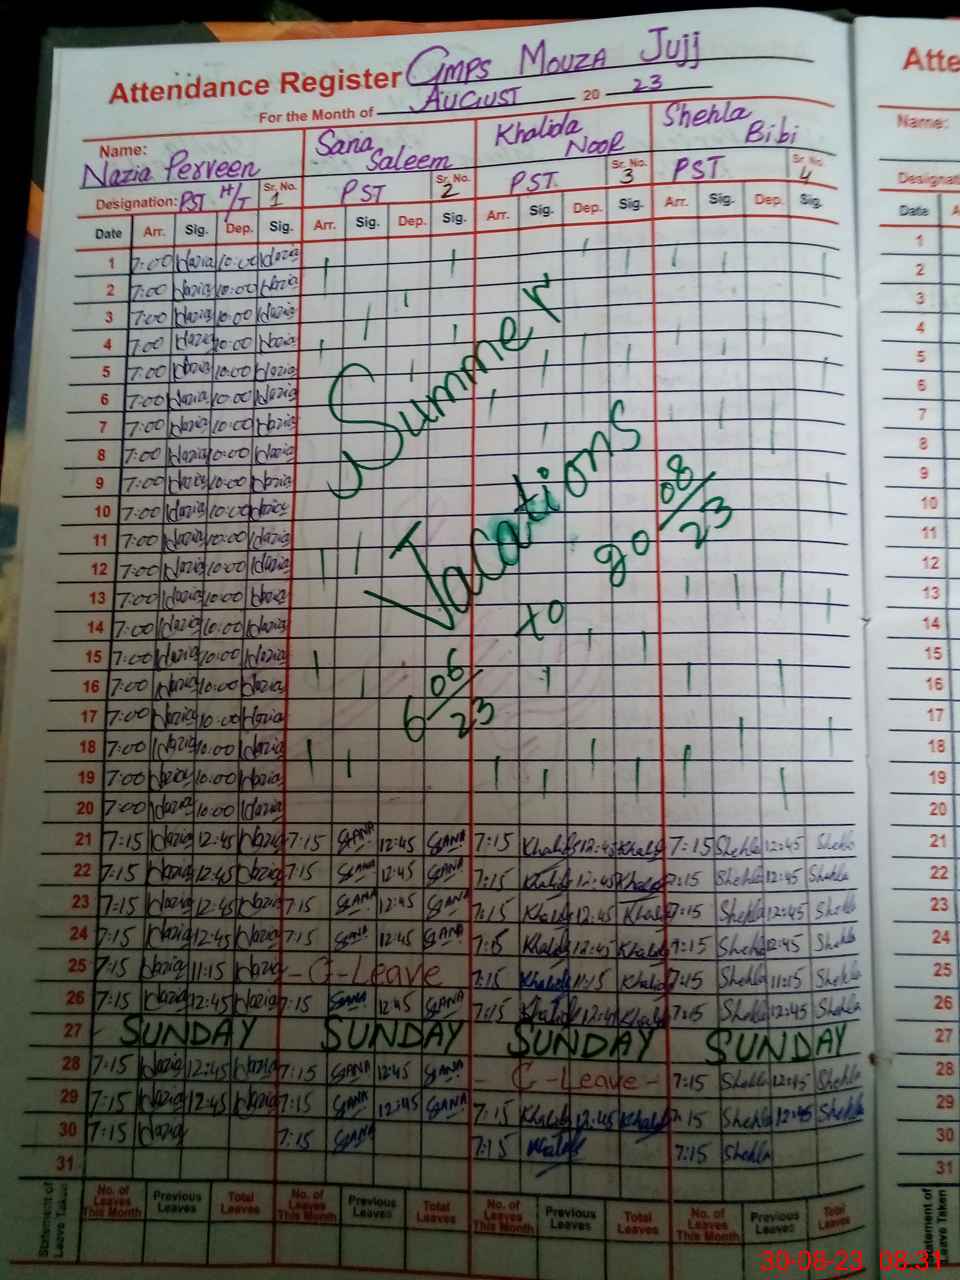 Attendance Register GMPS MOUZA Jujj
For the Month of AUGUST 20 23
Name: Nazia Perveen Sana Saleem Khalida Noor Shehla Bibi
Designation: PST H/T Sr. No. 1 PST Sr. No. 2 PST Sr. No. 3 PST Sr. No. 4
Date Arr. Sig. Dep. Sig. Arr. Sig. Dep. Sig. Arr. Sig. Dep. Sig. Arr. Sig. Dep. Sig.
1 7:00 Nazia 10:00 Nazia
2 7:00 Nazia 10:00 Nazia
3 7:00 Nazia 10:00 Nazia
4 7:00 Nazia 10:00 Nazia
5 7:00 Nazia 10:00 Nazia
6 7:00 Nazia 10:00 Nazia
7 7:00 Nazia 10:00 Nazia
8 7:00 Nazia 10:00 Nazia
9 7:00 Nazia 10:00 Nazia
10 7:00 Nazia 10:00 Nazia
11 7:00 Nazia 10:00 Nazia
12 7:00 Nazia 10:00 Nazia
13 7:00 Nazia 10:00 Nazia
14 7:00 Nazia 10:00 Nazia
15 7:00 Nazia 10:00 Nazia
16 7:00 Nazia 10:00 Nazia
17 7:00 Nazia 10:00 Nazia
18 7:00 Nazia 10:00 Nazia
19 7:00 Nazia 10:00 Nazia
20 7:00 Nazia 10:00 Nazia
Summer
Vacations
6 06/23 to 20 08/23
21 7:15 Nazia 12:45 Nazia 7:15 SANA 12:45 SANA 7:15 Khalida 12:45 Khalida 7:15 Shehla 12:45 Shehla
22 7:15 Nazia 12:45 Nazia 7:15 SANA 12:45 SANA 7:15 Khalida 12:45 Khalida 7:15 Shehla 12:45 Shehla
23 7:15 Nazia 12:45 Nazia 7:15 SANA 12:45 SANA 7:15 Khalida 12:45 Khalida 7:15 Shehla 12:45 Shehla
24 7:15 Nazia 12:45 Nazia 7:15 SANA 12:45 SANA 7:15 Khalida 12:45 Khalida 7:15 Shehla 12:45 Shehla
25 7:15 Nazia 11:15 Nazia - C-Leave 7:15 Khalida 11:15 Khalida 7:15 Shehla 11:15 Shehla
26 7:15 Nazia 12:45 Nazia 7:15 SANA 12:45 SANA 7:15 Khalida 12:45 Khalida 7:15 Shehla 12:45 Shehla
27 SUNDAY SUNDAY SUNDAY SUNDAY
28 7:15 Nazia 12:45 Nazia 7:15 SANA 12:45 SANA - C-Leave - 7:15 Shehla 12:45 Shehla
29 7:15 Nazia 12:45 Nazia 7:15 SANA 12:45 SANA 7:15 Khalida 12:45 Khalida 7:15 Shehla 12:45 Shehla
30 7:15 Nazia 7:15 SANA 7:15 Khalida 7:15 Shehla
31
Statement of Leave Taken No. of Leaves This Month Previous Leaves Total Leaves No. of Leaves This Month Previous Leaves Total Leaves No. of Leaves This Month Previous Leaves Total Leaves No. of Leaves This Month Previous Leaves Total Leaves
Atte
Name:
Designati
Date A
1
2
3
4
5
6
7
8
9
10
11
12
13
14
15
16
17
18
19
20
21
22
23
24
25
26
27
28
29
30
31
Statement of Leave Taken
30-08-23 08:31